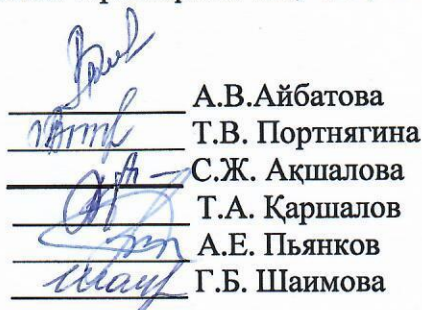 А.В.Айбатова
Т.В. Портнягина
С.Ж. Ақшалова
Т.А. Қаршалов
А.Е. Пьянков
Г.Б. Шаимова